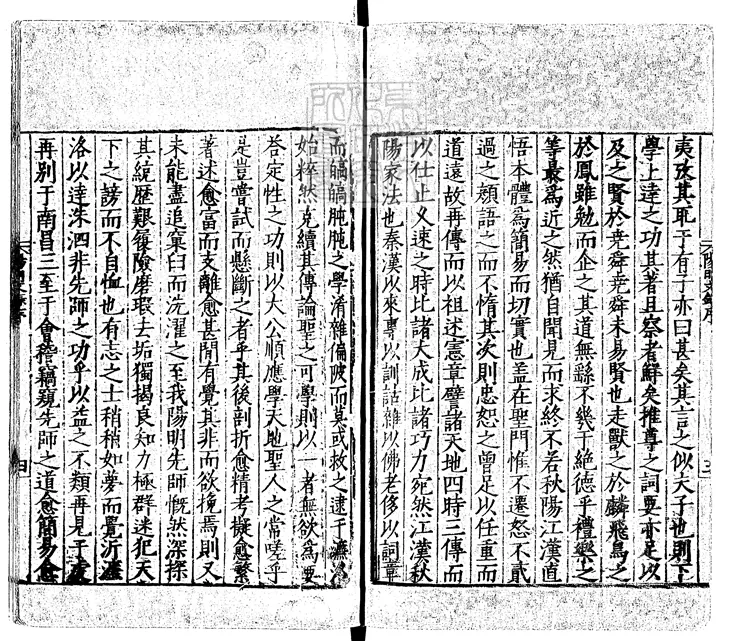 夷攷其聀于有子亦曰甚矣其言之似夫子也則下
學上達之功其著且察者鮮矣推尊之詞要亦足以
及之賢於尭舜尭舜未易賢也走獸之於麟飛鳥之
於鳳雖勉而企之其道無繇不幾于絶德乎禮樂之
等最爲近之然猶自聞見而求終不若秋陽江漢直
悟本體爲簡易而切實也盖在聖門惟不遷怒不貳
過之顔語之而不惰其次則忠恕之曾足以任重而
道遠故再傳而以祖述憲章譬諸天地四時三傳而
以仕止乂速之時比諸大成比諸巧力宛然江漢秋
陽家法也秦漢以來專以訓詁雜以佛老侈以詞章
而皜皜肫肫之學淆雜偏陂而莫或救之逮于濂洛
始粹然克續其傳論聖之可學則以一者無欲爲要
荅定性之功則以大公順應學天地聖人之常嗟乎
是豈嘗試而懸斷之者乎其後剖折愈精考擬愈繁
著述愈富而支離愈甚間有覺其非而欲挽焉則又
未能盡追窠臼而洗濯之至我陽明先師慨然深探
其統歷艱履險磨瑕去垢獨揭良知力極群迷犯天
下之謗而不自恤也有志之士稍稍如夢而覺泝濂
洛以達洙泗非先師之功乎以益之不類再見于虔
再别于南昌三至于會稽竊窺先師之道愈簡易愈
四